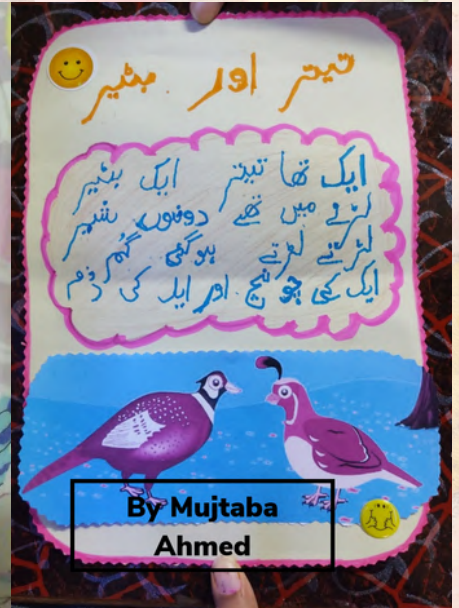 تیتر اور بٹیر
ایک تھا تیتر ایک بٹیر
لڑنے میں تھے دونوں شیر
لڑتے لڑتے ہوگئی گم
ایک کی چونچ اور ایک کی دم
By Mujtaba
Ahmed